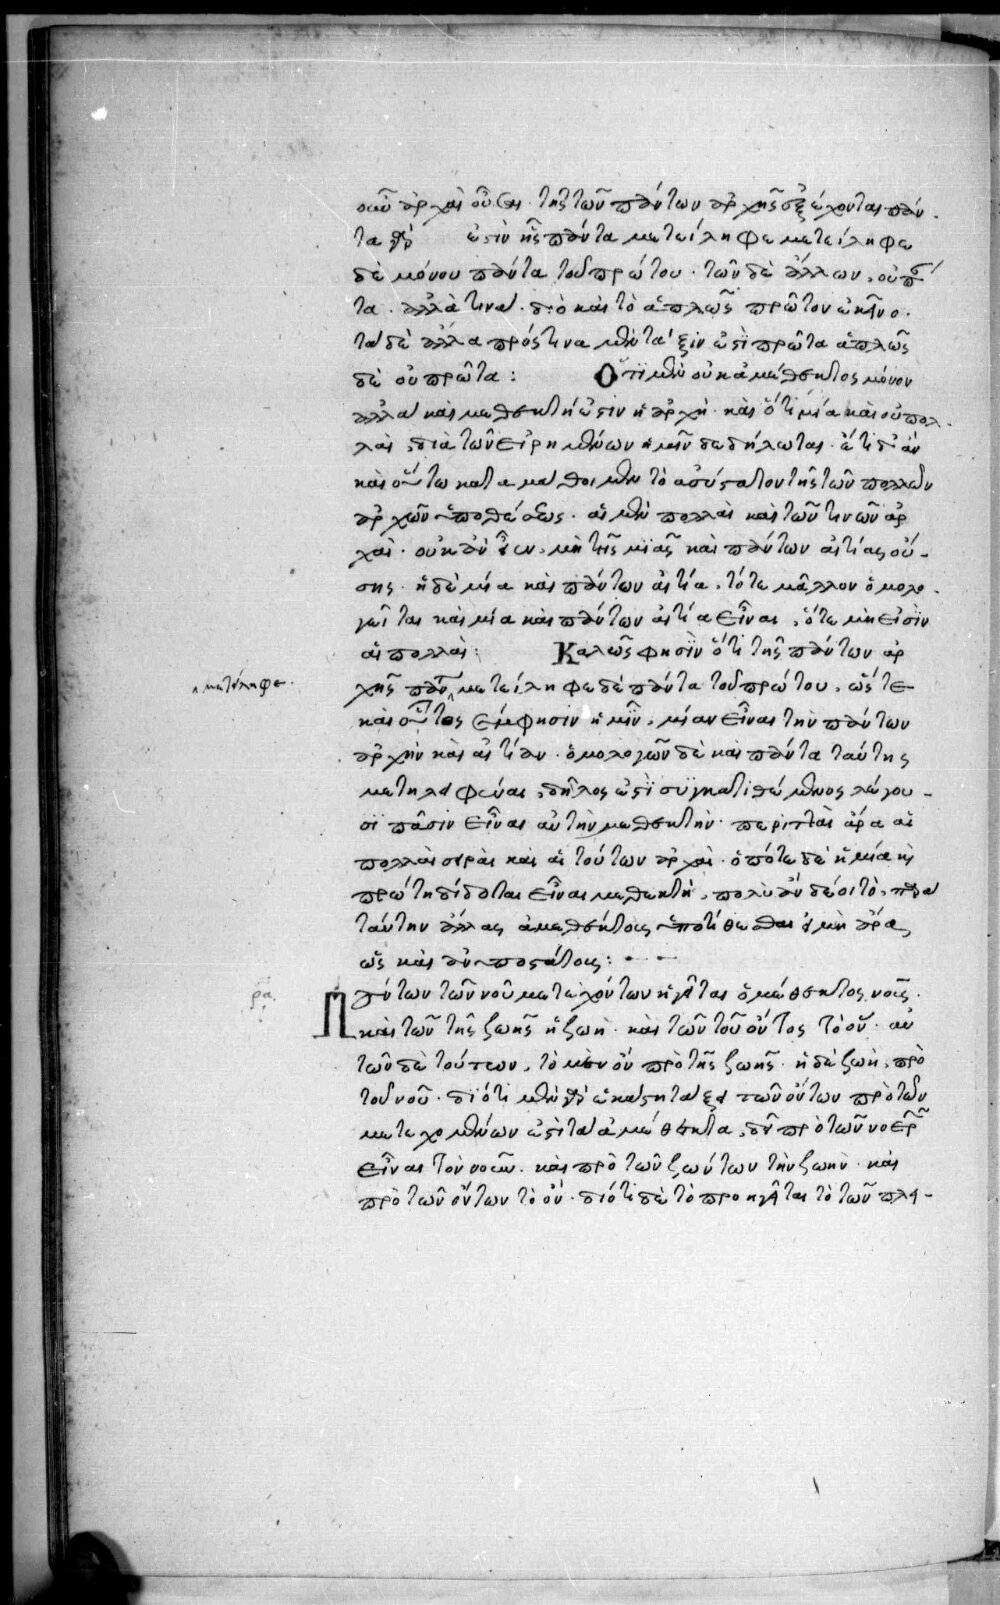 σῶν ἀρχαὶ οὖσαι. τῆς τῶν πάντων ἀρχῆς ἐξέχονται πάν
τα γὰρ ἐστὶν ἧς πάντα μετείληφε μετείληφε
δὲ μόνου πάντα τοῦ πρώτου. τῶν δὲ ἄλλων, οὐ πάν
τα. ἀλλὰ τινά. διὸ καὶ τὸ ἁπλῶς πρῶτον ἐκεῖνο.
τὰ δὲ ἄλλα πρός τινα μὲν τάξιν ἐστὶ πρῶτα ἁπλῶς
δὲ οὐ πρῶτα: Ὅτι μὲν οὐκ ἀμέθεκτος μόνον
ἀλλὰ καὶ μεθεκτή ἐστιν ἡ ἀρχὴ. καὶ ὅτι μία καὶ οὐ πολ
λαὶ, διὰ τῶν εἰρημένων ἡμῖν δεδήλωται. ἔτι δ' ἂν
καὶ οὕτω καταμάθοιμεν τὸ ἀσύστατον τῆς τῶν πολλῶν
ἀρχῶν ὑποθέσεως. αἱ μὲν πολλαὶ καὶ τῶν τινῶν ἀρ
χαὶ. οὐκ ἂν εἶεν, μὴ τῆς μιᾶς καὶ πάντων αἰτίας οὔ-
σης. ἡ δὲ μία καὶ πάντων αἰτία, τότε μᾶλλον ὁμολο
γεῖται καὶ μία καὶ πάντων αἰτία εἶναι, ὅτε μὴ εἰσὶν
αἱ πολλαὶ: Καλῶς φησὶν ὅτι τῆς πάντων ἀρ
χῆς πάντα μετείληφε δὲ πάντα τοῦ πρώτου, ὥστε
μετείληφε.
καὶ οὗτος σύμφησιν ἡμῖν, μίαν εἶναι τὴν πάντων
ἀρχὴν καὶ αἰτίαν. ὁμολογῶν δὲ καὶ πάντα ταύτης
μετειληφέναι, δῆλος ἐστὶ συγκατιθέμενος λέγου-
σι πᾶσιν εἶναι αὐτὴν μεθεκτὴν. περιτταὶ ἄρα αἱ
πολλαὶ σειραὶ καὶ αἱ τούτων ἀρχαὶ. ὁπότε δὲ ἡ μία καὶ
πρώτη δίδοται εἶναι μεθεκτή, πολὺ ἂν δέοι τὸ, παρὰ
ταύτην ἄλλας ἀμεθέκτους ὑποτίθεσθαι εἰ μὴ ἄρα,
ὡς καὶ ἀνυποστάτους:
ρα
Πάντων τῶν νοῦ μετεχόντων ἡγεῖται ὁ ἀμέθεκτος νοῦς.
καὶ τῶν τῆς ζωῆς ἡ ζωὴ. καὶ τῶν τοῦ ὄντος τὸ ὄν. αὐ
τῶν δὲ τούτων, τὸ μὲν ὂν πρὸ τῆς ζωῆς. ἡ δὲ ζωὴ, πρὸ
τοῦ νοῦ. διότι μὲν γὰρ ἐν ἑκάστῃ τάξει τῶν ὄντων πρὸ τῶν
μετεχομένων ἐστὶ τὰ ἀμέθεκτα, δεῖ πρὸ τῶν νοερῶν
εἶναι τὸν νοῦν. καὶ πρὸ τῶν ζώντων τὴν ζωὴν. καὶ
πρὸ τῶν ὄντων τὸ ὄν. διότι δὲ τὸ προηγεῖται τὸ τῶν πλει-